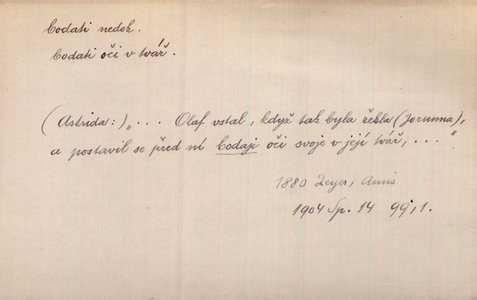 bodati nedok.
bodati oči v tvář.
(Astrida:) „... Olaf vstal, když tak byla řekla (Jorunna),
a postavil se před ní bodaje oči svoje v její tvář, ..."
1880 Zeyer, Amis
1904 Sp. 14 99, 1.